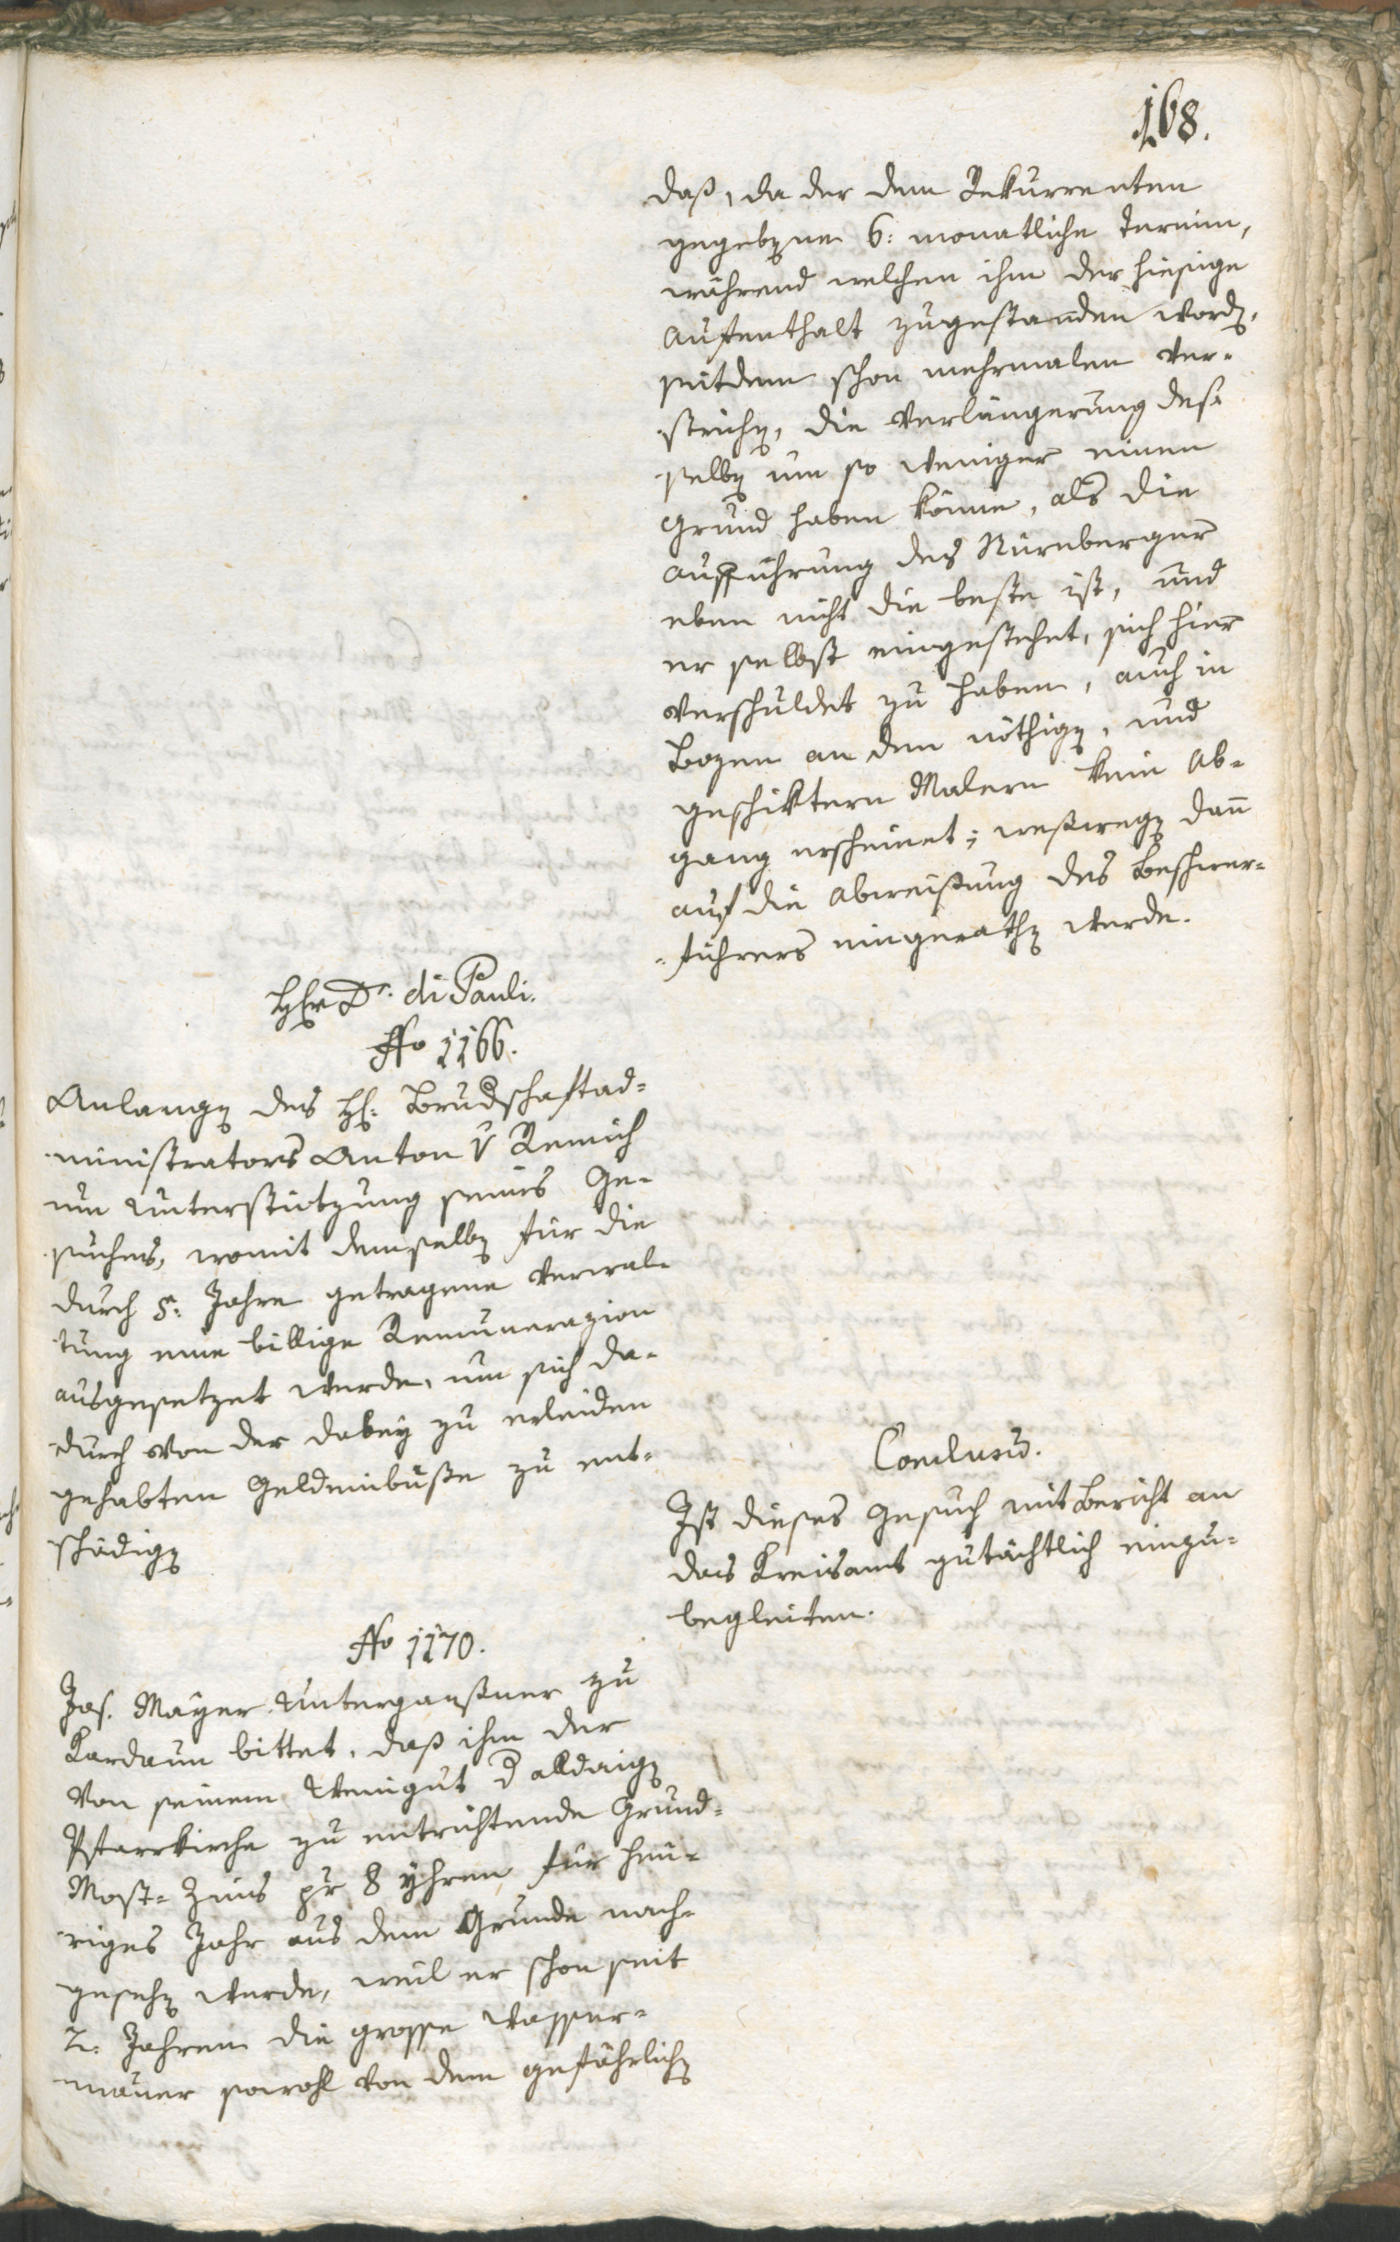 168.
daß, da der dem Rekurrenten
gegebene 6: monatliche Termin,
während welchen ihm der hiesige
Aufenthalt zugestanden worden,
seitdem schon mehrmalen ver-
strichen, die Verlängerung des-
selben um so weniger einen
Grund haben könne, als die
Aufführung des Nürnberger
eben nicht die beste ist, und
er selbst eingestehet, sich hier
verschuldet zu haben, auch in
Bozen an den nöthigen, und
geschiktern Malern kein Ab-
gang erscheinet; weßwegen dann
auf die Abweisung des Beschwer-
-führers eingerathen werde.
HErr Dr. di Pauli.
No 1166.
Anlangen des H: Brudschaftad-
ministrators Anton v Remich
um Unterstützung seines Ge-
suches, womit demselben für die
durch 5: Jahre getragene Verwal-
tung eine billige Remunerazion
ausgesetzet werde, um sich da-
durch von der dabey zu erleiden
gehabten Geldeinbuße zu ent-
schädigen
Conclusum.
Ist dieses Gesuch mit Bericht an
das Kreisamt gutächtlich einzu-
begleiten.
No 1170.
Jos. Mayer Unterganßner zu
Kardaun bittet, daß ihm der
von seinem Weingut d alldaigen
Pfarrkirche zu entrichtende Grund-
Most-Zins pr 8 Yhren für heu-
riges Jahr aus dem Grunde nach-
gesehen werde, weil er schon seit
2. Jahren die grosse Wasser-
mauer sowohl von dem gefährlichen